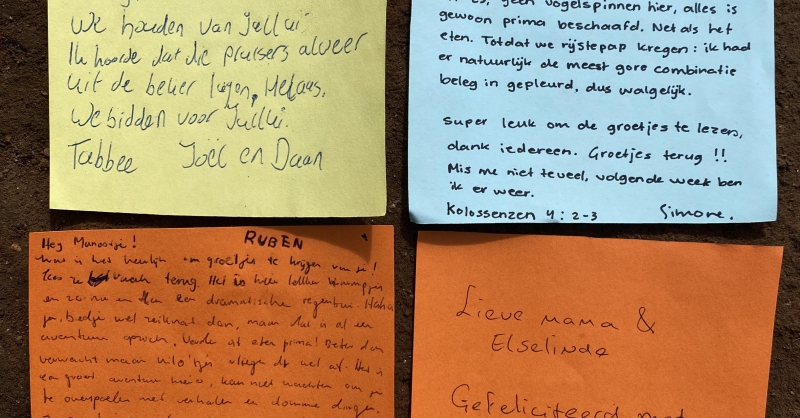 We houden van Jullui.
Ik hoorde dat die pruisers alweer
uit de beker liegen, Helaas.
We bidden voor Jullui.
Tabbee Joël en Daan
geen vogelspinnen hier, alles is
gewoon prima beschaafd. Net als het
eten. Totdat we rijstepap kregen: ik had
er natuurlijk de meest gore combinatie
beleg in gepleurd, dus walgelijk.
Super leuk om de groetjes te lezen,
dank iedereen. Groetjes terug !!
Mis me niet teveel, volgende week ben
ik er weer.
Kolossenzen 4 : 2-3 Simone.
RUBEN
Hey !
was is het heerlijk om groetjes te krijgen van je!
vaak terug. Het is hier lekker
en zo nu en dan een dramatische regenbui Haha
ja, bedje wel zeiknat dan, maar dat is al een
avontuur opzich. Verder is eten prima! Beter dan
verwacht maar kilo'tjes vliegen er wel af. Het is
een groot avontuur hiero, kan niet wachten om je
te overspoelen met verhalen en domme dingen.
Lieve mama &
Elselinde
Gefeliciteerd met